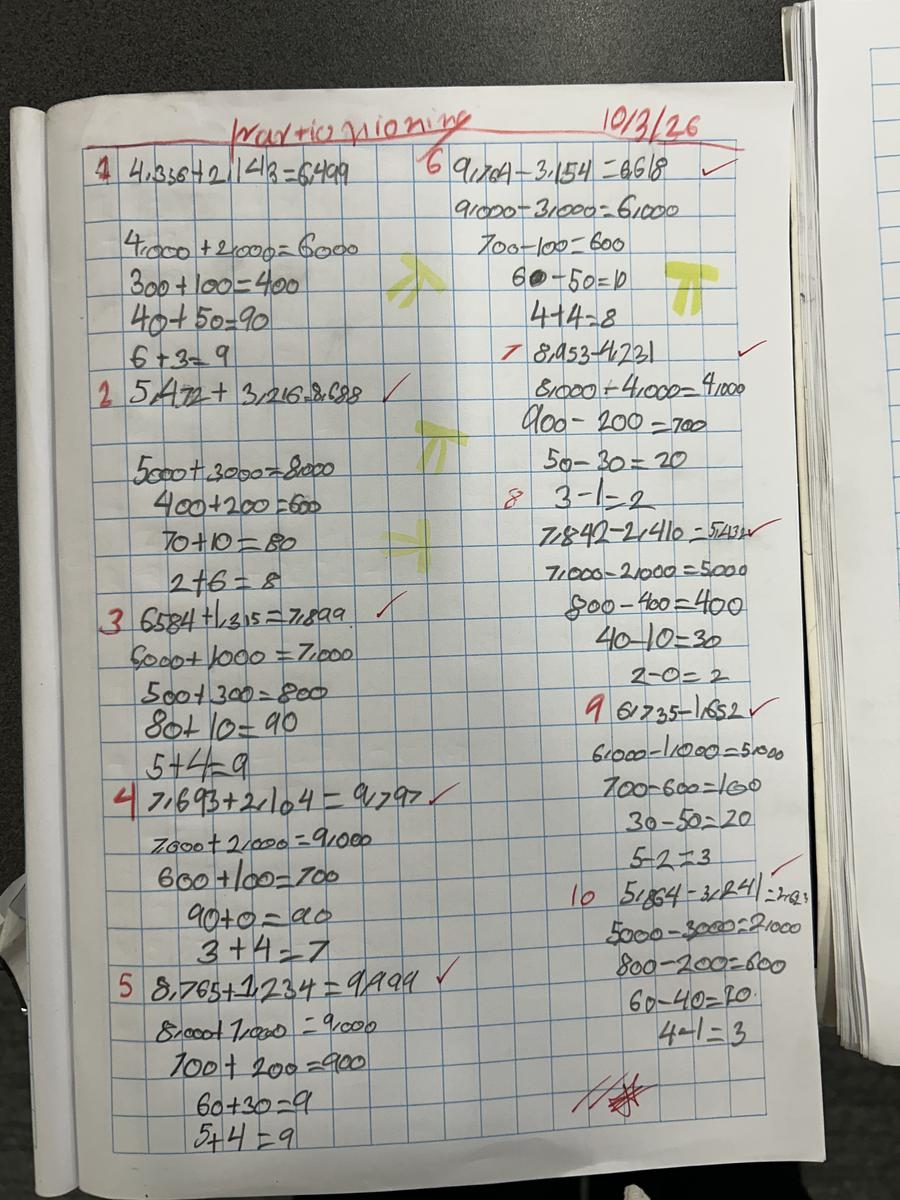 Partitioning
10/3/26
1 4,336+2,143=6,499
4,000+2,000=6000
300+100=400
40+50=90
6+3=9
2 5,472+3,216=8,688
5000+3000=8000
400+200=600
70+10=80
2+6=8
3 6584+1,315=7,899.
6000+1000=7,000
500+300=800
80+10=90
5+4=9
4 7,693+2,104=9,797
7,000+2,000=9,000
600+100=700
90+0=90
3+4=7
5 8,765+1,234=9,999
8,000+1,000=9,000
700+200=900
60+30=9
5+4=9
6 9,764-3,154=6,618
9,000-3,000=6,000
700-100=600
60-50=10
4+4=8
7 8,953-4,231
8,000-4,000=4,000
900-200=700
50-30=20
8 3-1=2
7,842-2,410=5,432
7,000-2,000=5,000
800-400=400
40-10=30
2-0=2
9 6,735-1,652
6,000-1,000=5,000
700-600=100
30-50=20
5-2=3
10 5,864-3,241=2,623
5000-3000=2,000
800-200=600
60-40=20.
4-1=3